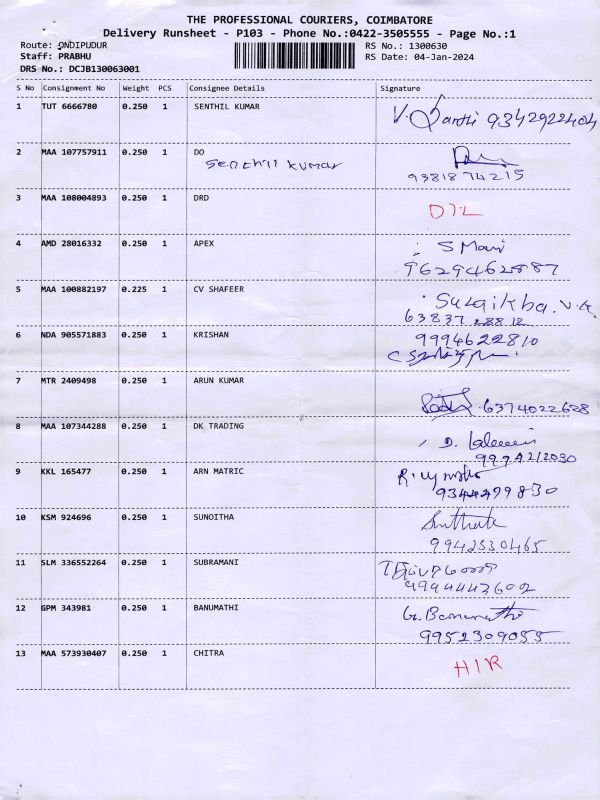 THE PROFESSIONAL COURIERS, COIMBATORE
Delivery Runsheet - P103 - Phone No.:0422-3505555 - Page No.:1
Route: ONDIPUDUR
RS No.: 1300630
Staff: PRABHU
RS Date: 04-Jan-2024
DRS No.: DCJB130063001
S No Consignment No Weight PCS Consignee Details Signature
1 TUT 6666780 0.250 1 SENTHIL KUMAR
9342922404
2 MAA 107757911 0.250 1 DO
Senthil kumar
9381874215
3 MAA 108004893 0.250 1 DRD
D7L
4 AMD 28016332 0.250 1 APEX S Mani
9629462887
5 MAA 100882197 0.225 1 CV SHAFEER
63837 28812
6 NDA 905571883 0.250 1 KRISHAN 9994622810
7 MTR 2409498 0.250 1 ARUN KUMAR
6374022628
8 MAA 107344288 0.250 1 DK TRADING
9994212030
9 KKL 165477 0.250 1 ARN MATRIC
9344499830
10 KSM 924696 0.250 1 SUNOITHA
9942530465
11 SLM 336552264 0.250 1 SUBRAMANI
9994443602
12 GPM 343981 0.250 1 BANUMATHI G. Banumathi
9952309055
13 MAA 573930407 0.250 1 CHITRA
HIR